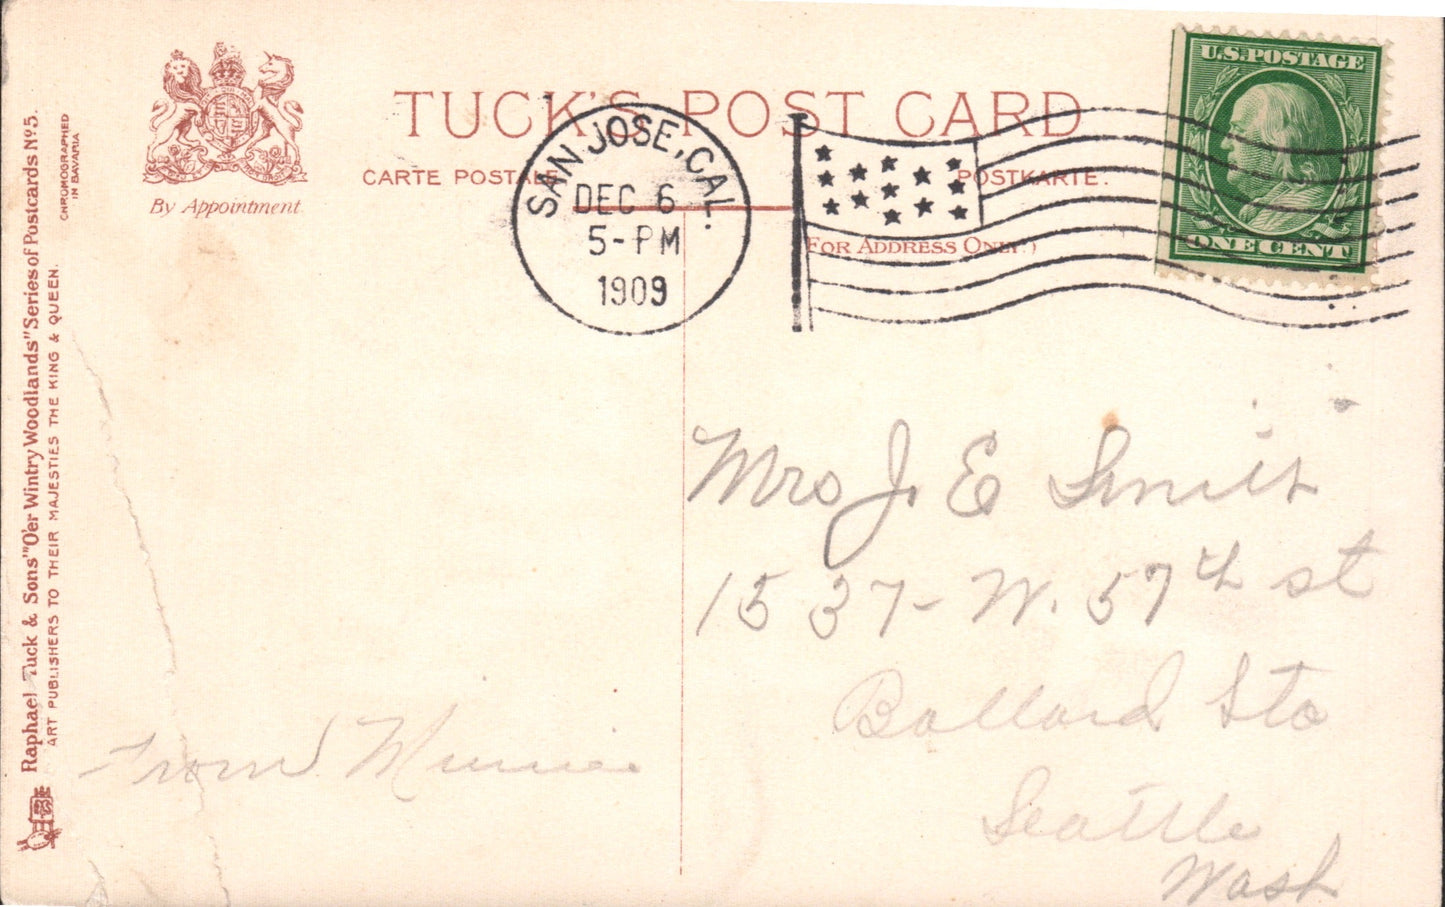 TUCK'S POST CARD
CARTE POSTALE
POSTKARTE.
(FOR ADDRESS ONLY.)
By Appointment
Raphael Tuck & Sons' "O'er Wintry Woodlands" Series of Postcards Nº 5.
ART PUBLISHERS TO THEIR MAJESTIES THE KING & QUEEN.
CHROMOGRAPHED
IN BAVARIA
SAN JOSE, CAL.
DEC 6
5-PM
1909
U.S. POSTAGE
ONE CENT
Mrs J. E Smith
1537- W. 57th st
Ballard Sta
Seattle
Wash
From Minnie